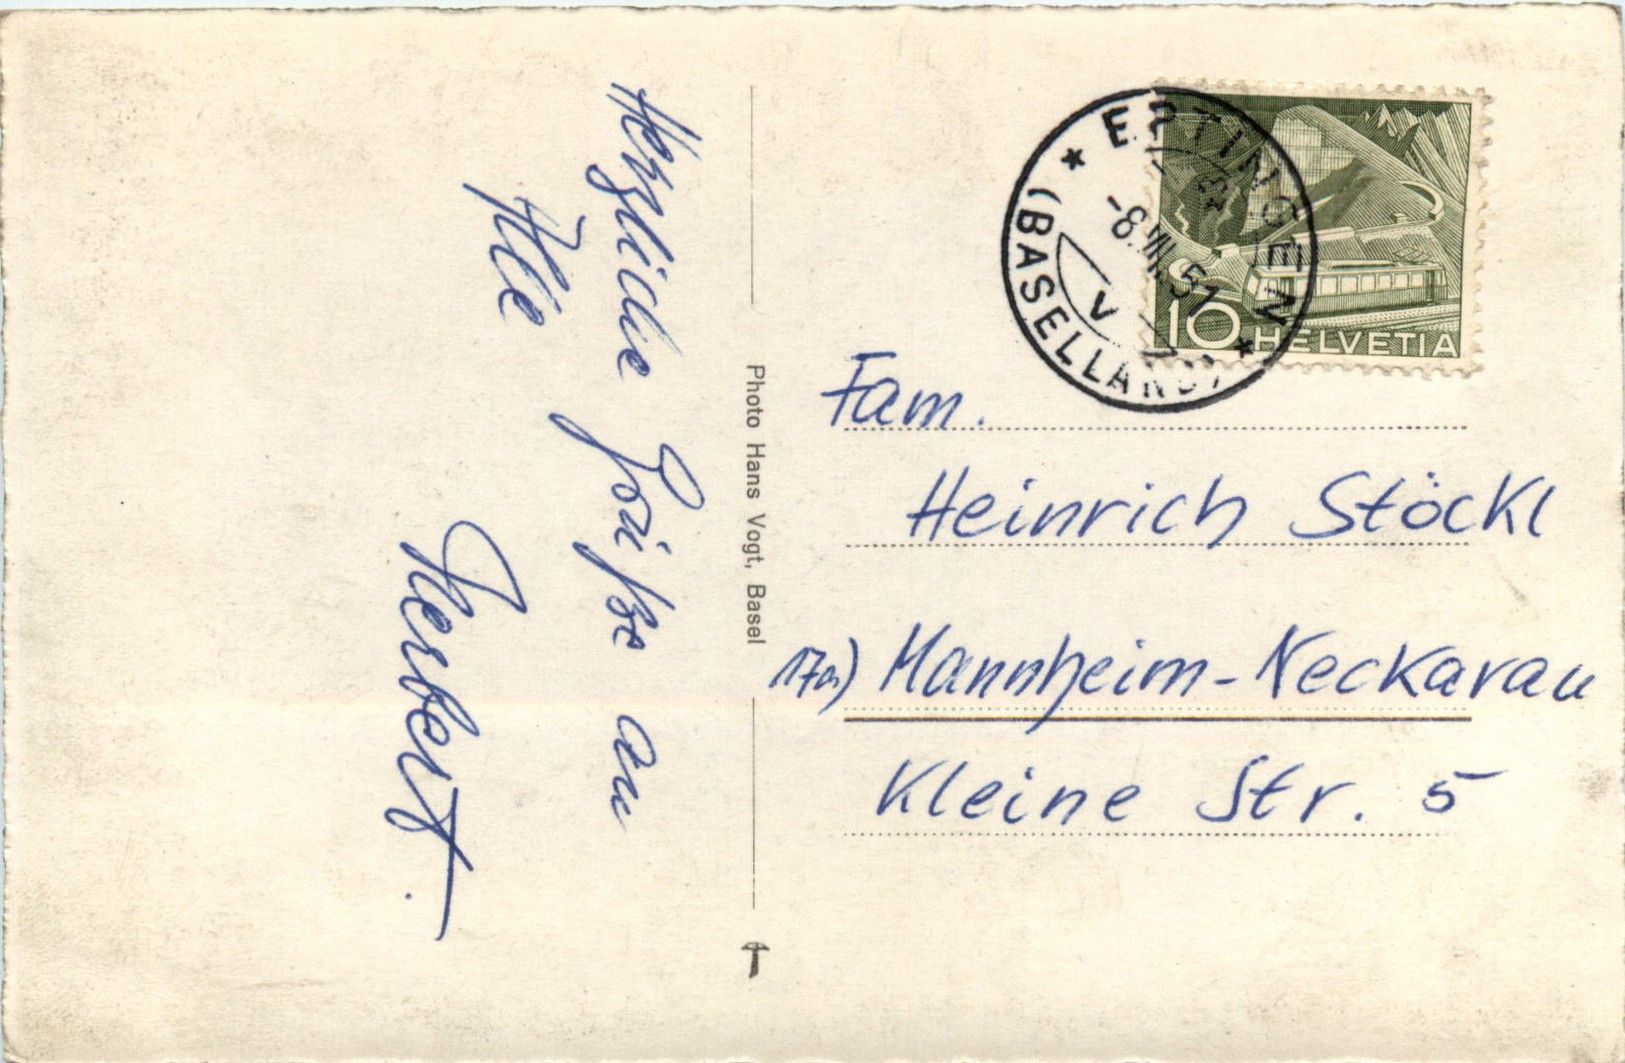 Herzliche Grüße an
Alle
Herbert.
Photo Hans Vogt, Basel
ERTINGEN
-8.VIII.51
V
(BASELLAND)
10 HELVETIA
Fam.
Heinrich Stöckl
17a) Mannheim-Neckarau
Kleine Str. 5